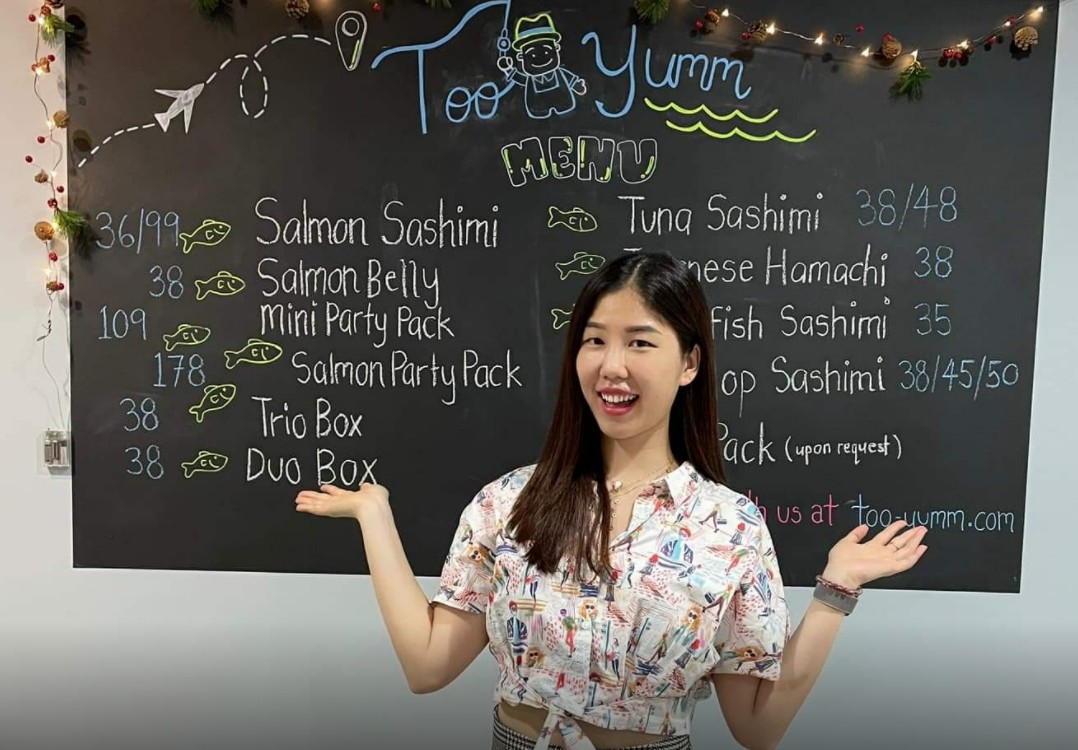 Too Yumm
MENU
36/99 Salmon Sashimi
38 Salmon Belly
109 Mini Party Pack
178 Salmon Party Pack
38 Trio Box
38 Duo Box
Tuna Sashimi 38/48
Hamachi 38
Sashimi 35
Sashimi 38/45/50
Pack (upon request)
us at too-yumm.com